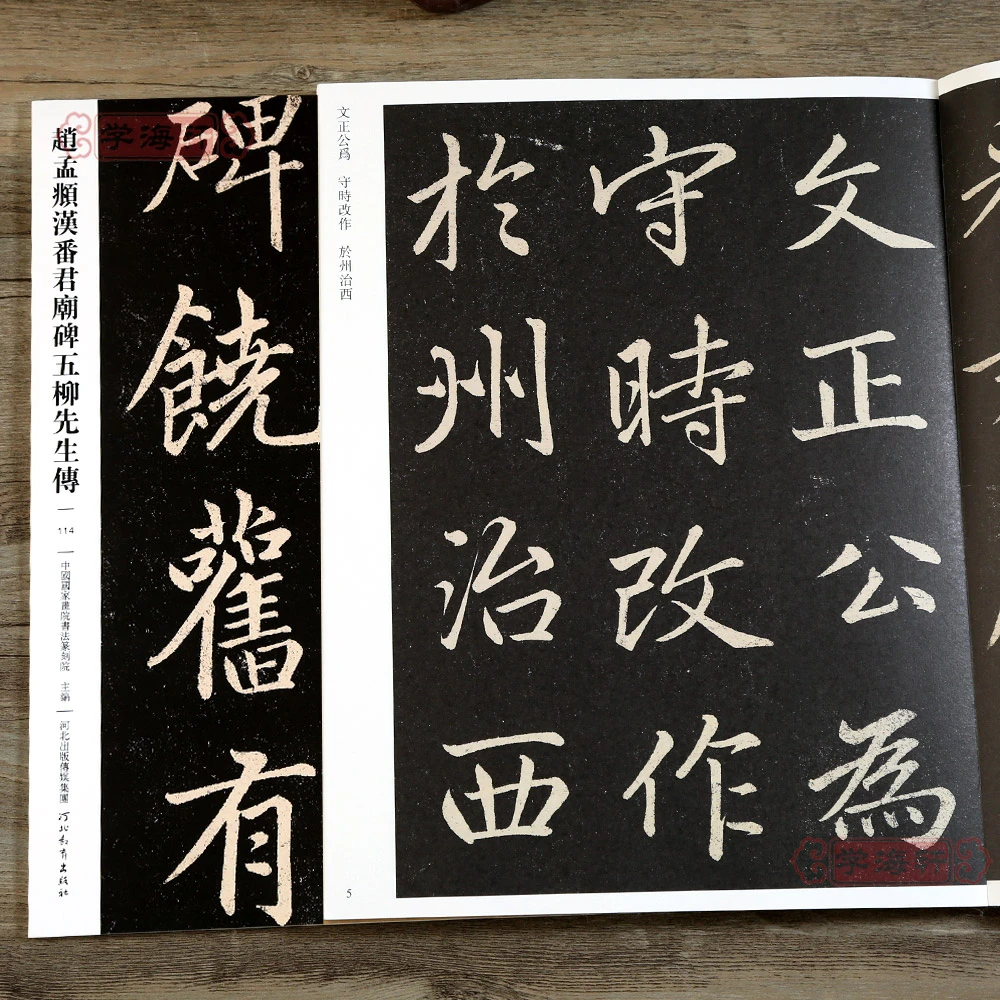 学海轩
趙孟頫漢番君廟碑五柳先生傳
114
中國國家畫院書法篆刻院 主編
河北出版傳媒集團
河北教育出版社
碑饒舊有
文正公爲 守時改作 於州治西
文正公為
守時改作
於州治西
5
学海轩